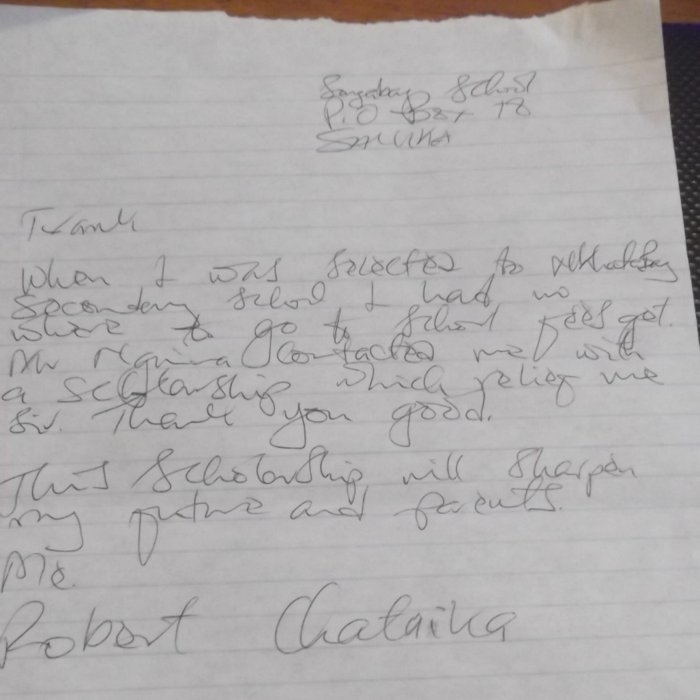 School
P.O Box 18
SALIMA
Thank
When I was selected to
Secondary School I had no
where to go to School fees got.
Mr contacted me with
a scholarship which relief me
Sir. Thank you good.
This Scholarship will sharpen
my future and parents.
Me.
Robert Chataika